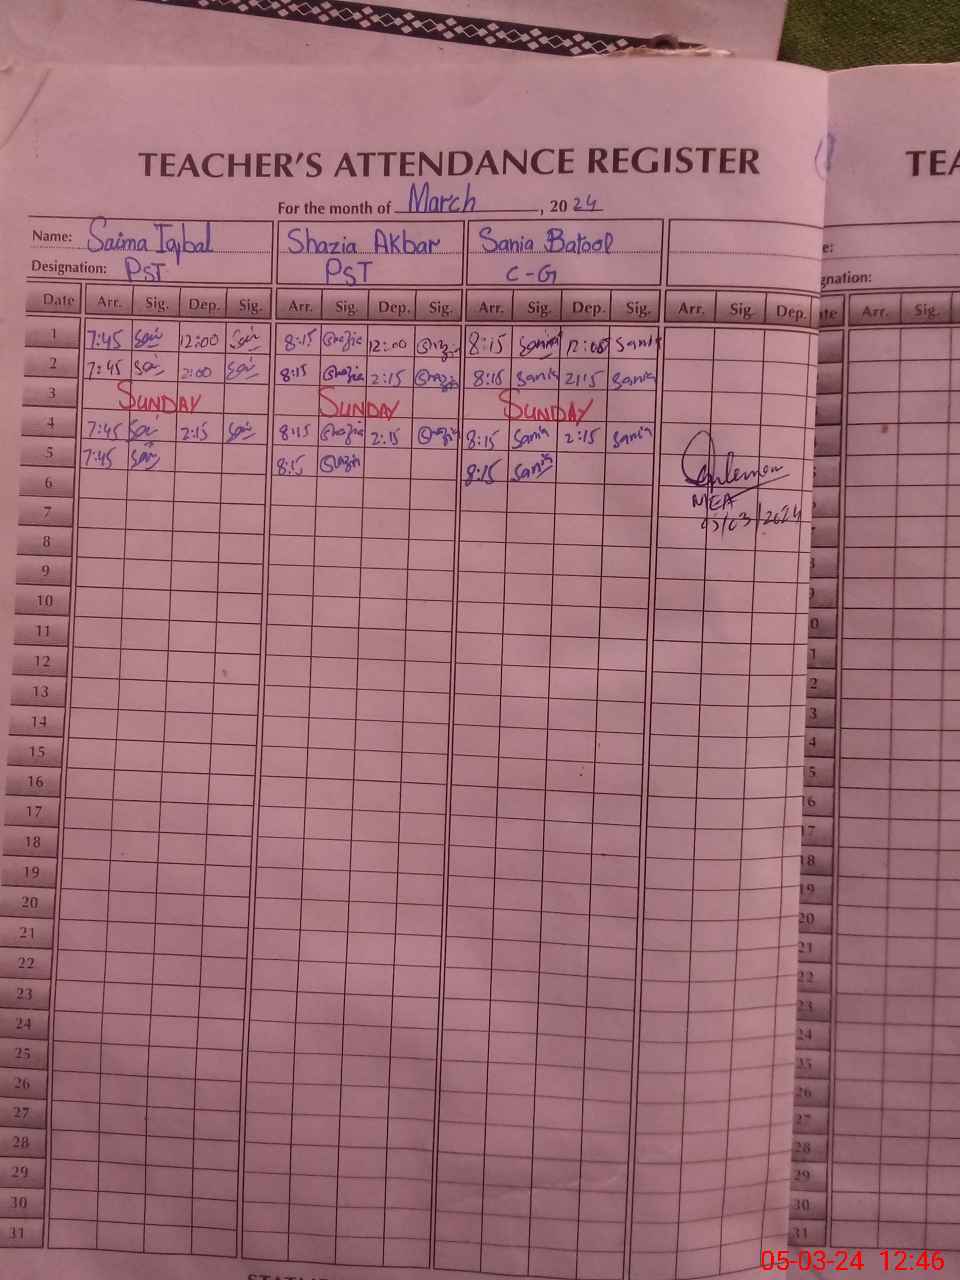 TEACHER'S ATTENDANCE REGISTER
TEA
For the month of March, 2024
Name: Saima Iqbal Shazia Akbar Sania Batool
e:
Designation: PST PST C-G
gnation:
Date Arr. Sig. Dep. Sig. Arr. Sig. Dep. Sig. Arr. Sig. Dep. Sig. Arr. Sig. Dep. ate Arr. Sig.
1 7:45 Sai 12:00 Sai 8:15 Shazia 12:00 Shazia 8:15 Sania 12:00 Sania
2 7:45 Sai 2:00 Sai 8:15 Shazia 2:15 Shazia 8:15 Sania 2:15 Sania
3 SUNDAY SUNDAY SUNDAY
4 7:45 Sai 2:15 Sai 8:15 Shazia 2:15 Shazia 8:15 Sania 2:15 Sania
5 7:45 Sai 8:15 Shazia 8:15 Sania
6
MEA
7
05/03/2024
8
9
10
11
12
13
14
15
16
17
18
19
20
21
22
23
24
25
26
27
28
29
30
31
05-03-24 12:46